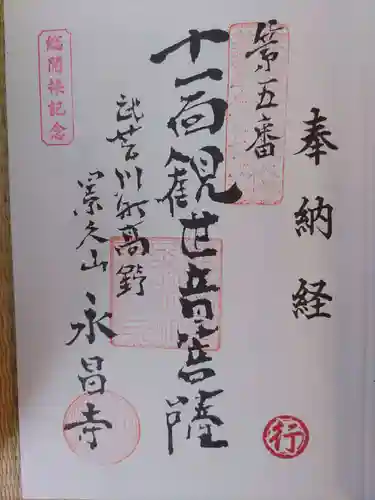 奉納経
第五番
十一面観世音菩薩
武昔川新高野
景久山
永昌寺
総開帳記念
行